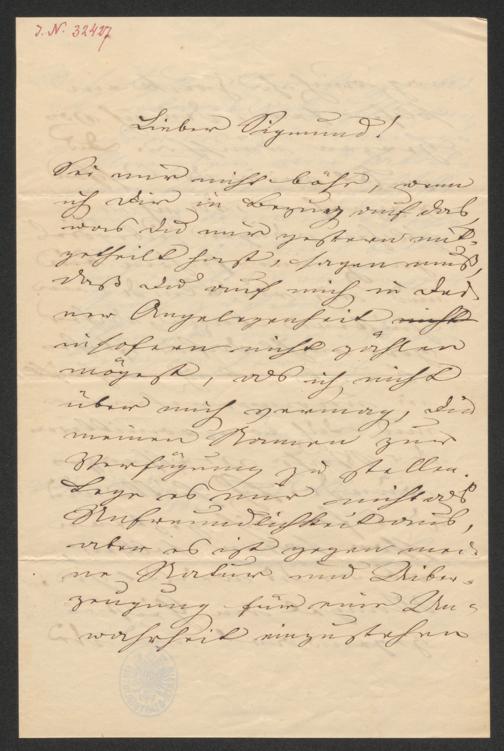 J. N. 32427
Lieber Sigmund!
Sei mir nicht böse, wenn
ich Dir in Bezug auf das,
was Du mir gestern mit-
getheilt hast, sagen muß,
daß Du auf mich in Dei-
ner Angelegenheit nicht
insofern nicht zählen
mögest, als ich nicht
über mich vermag, Dir
meinen Namen zur
Verfügung zu stellen.
Lege es mir nicht als
Unfreundlichkeit aus,
aber es ist gegen mei-
ne Natur und Ueber-
zeugung für eine Un-
wahrheit einzustehen